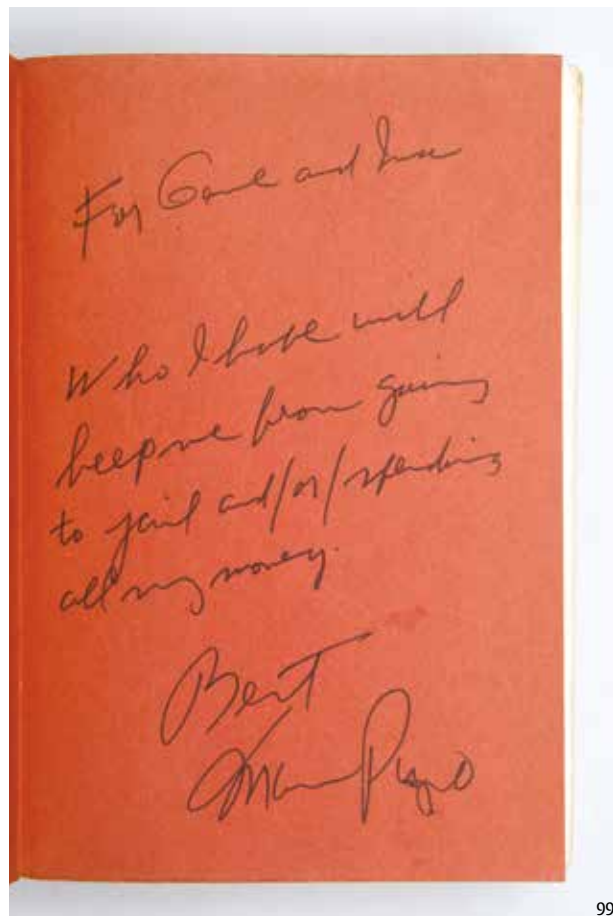 For and
Who I hope will
keep me from going
to jail and/or/spending
all my money.
Best
Mario Puzo
99